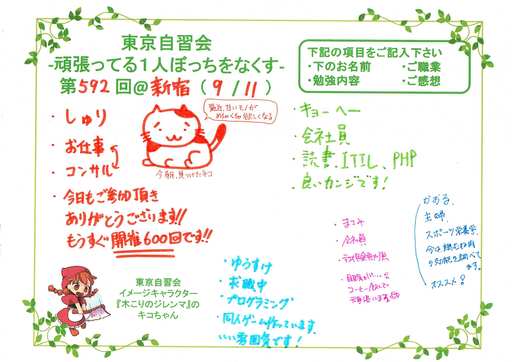 東京自習会
-頑張ってる1人ぼっちをなくす-
第592回@新宿(9/11)
下記の項目をご記入下さい
・下のお名前 ・ご職業
・勉強内容 ・ご感想
・しゅり
・お仕事
・コンサル
・今日もご参加頂き
ありがとうございます!!
もうすぐ開催600回です!!
最近、甘いモノが
今朝、見かけたネコ
・キョーヘー
・会社員
・読書、ITIL、PHP
良いカンジです!
・まさみ
・会社員
かおる
主婦
スポーツ栄養学
オススメ
・ゆうすけ
・求職中
・プログラミング
・同人ゲーム作っています。
いい雰囲気です!
東京自習会
イメージキャラクター
『木こりのジレンマ』の
キコちゃん